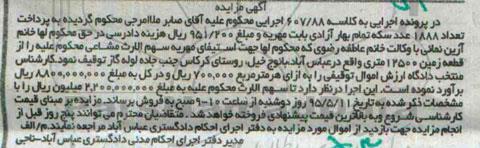 آگهی مزایده
در پرونده اجرایی به کلاسه ۶۰۷/۸۸ اجرایی محکوم علیه آقای صابر ملاامرجی محکوم گردیده به پرداخت
تعداد ۱۸۸۸ عدد سکه تمام بهار آزادی بابت مهریه و مبلغ ۹۵۱/۲۰۰ ریال هزینه دادرسی در حق محکوم لها خانم
آرین نمائی با وکالت خانم عاطفه رضوی که محکوم لها جهت استیفای مهریه سهم الارث مشاعی محکوم علیه را از
قطعه زمین ۱۲۵۰۰ متری واقع درعباس آباد،بانوج خیل، روستای کرکاس جنب جاده لوله گاز توقیف نمود.کارشناس
منتخب دادگاه ارزش اموال توقیفی را به ازای هرمترمربع ۷۰۰/۰۰۰ ریال و در کل به مبلغ ۸،۸۰۰،۰۰۰،۰۰۰ ریال
برآورد نموده است. این اجرا در نظر دارد تاسهم الارث محکوم علیه را به میزان ۲،۲۰۰،۰۰۰،۰۰۰ ریال را با
مشخصات ذکر شده به تاریخ ۹۵/۵/۱۱ روز دوشنبه از ساعت ۱۰-۹ صبح به فروش برساند. مزایده بر مبنای قیمت
کارشناسی شروع وبه بالاترین قیمت پیشنهادی فروخته خواهدشد. متقاضیان محترم می توانند پنج روز قبل از
انجام مزایده جهت بازدید از اموال مورد مزایده به دفتر اجرای احکام دادگستری عباس آباد مراجعه نمایند.م/الف
مدیر دفتر اجرای احکام مدنی دادگستری عباس آباد-ناجی